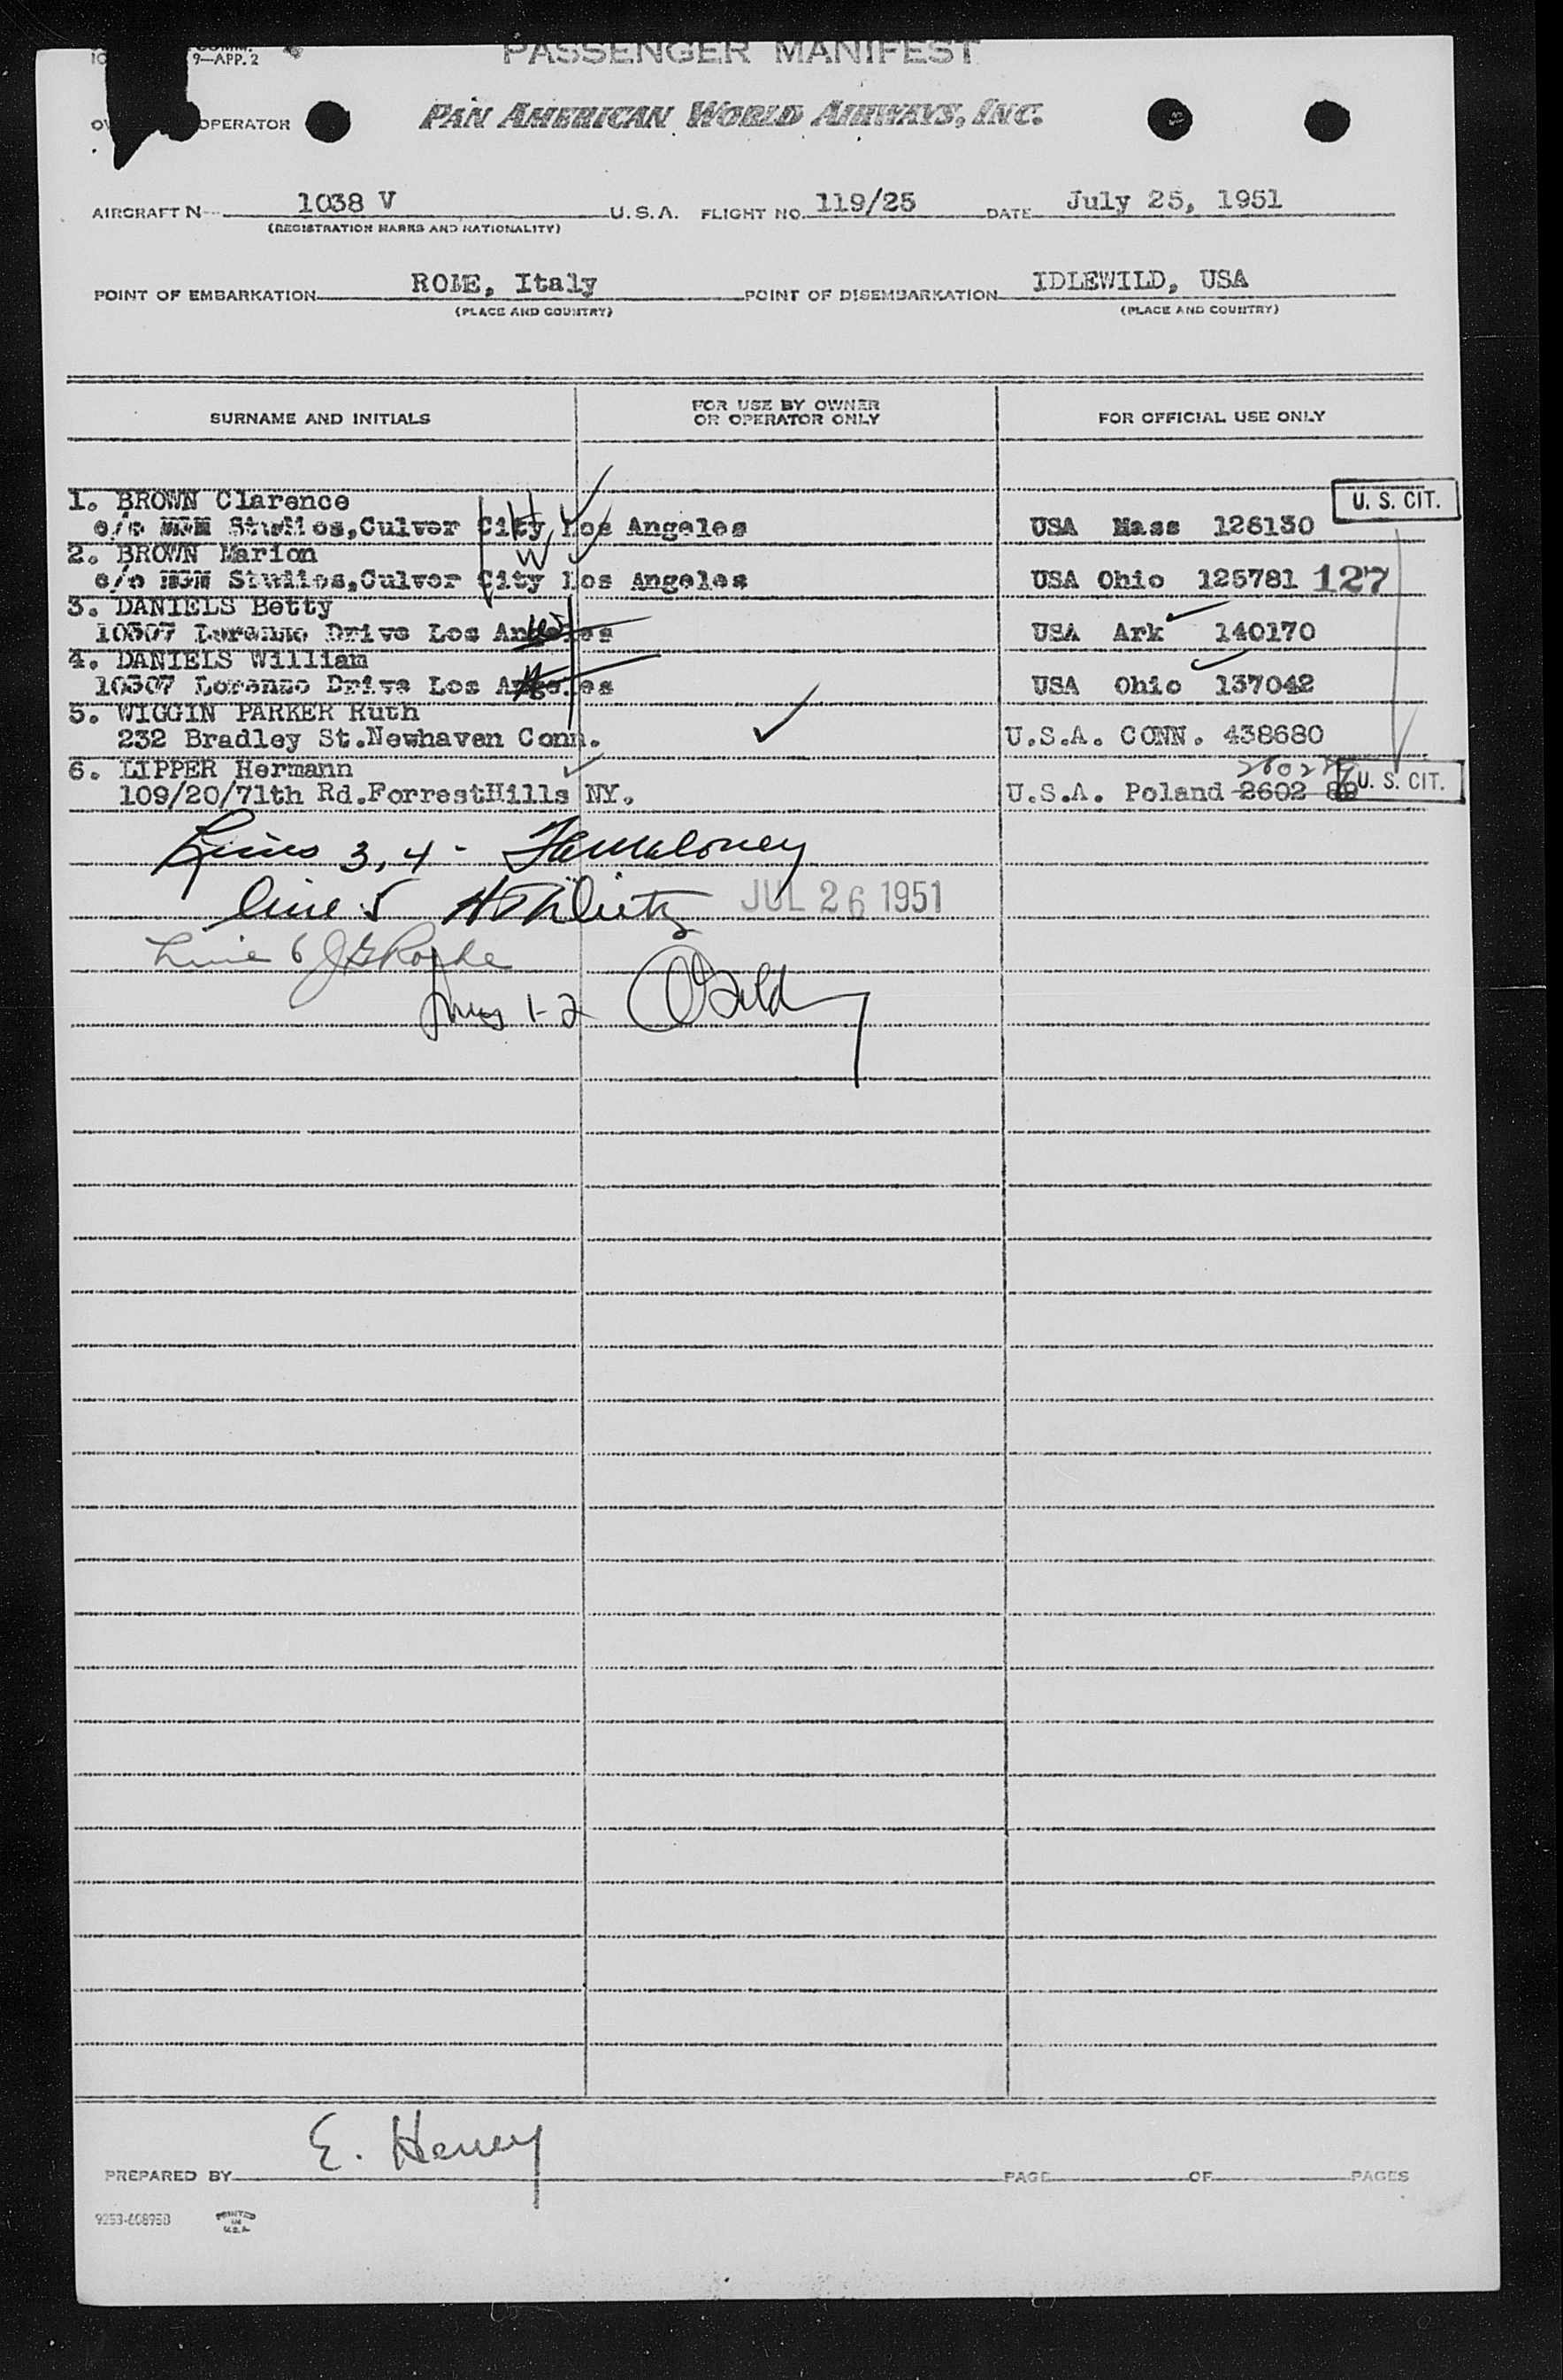 9—APP. 2
PASSENGER MANIFEST
OPERATOR
PAN AMERICAN WORLD AIRWAYS, INC.
AIRCRAFT N 1038 V U.S.A. FLIGHT NO. 119/25 DATE July 25, 1951
(REGISTRATION MARKS AND NATIONALITY)
POINT OF EMBARKATION ROME, Italy POINT OF DISEMBARKATION IDLEWILD, USA
(PLACE AND COUNTRY) (PLACE AND COUNTRY)
SURNAME AND INITIALS FOR USE BY OWNER OR OPERATOR ONLY FOR OFFICIAL USE ONLY
1. BROWN Clarence U. S. CIT.
c/o MGM Studios,Culver City Los Angeles USA Mass 126130
2. BROWN Marion W
c/o MGM Studios,Culver City Los Angeles USA Ohio 125781 127
3. DANIELS Betty
10307 Lorenzo Drive Los Angeles USA Ark 140170
4. DANIELS William
10307 Lorenzo Drive Los Angeles USA Ohio 137042
5. WIGGIN PARKER Ruth
232 Bradley St.Newhaven Conn. U.S.A. CONN. 438680
6. LIPPER Hermann
109/20/71th Rd.ForrestHills NY. U.S.A. Poland 2602 U. S. CIT.
Lines 3, 4 -
line 5 JUL 26 1951
Line 6
Lines 1-2
PREPARED BY E. Henry PAGE OF PAGES
9253-608950 PRINTED IN U.S.A.